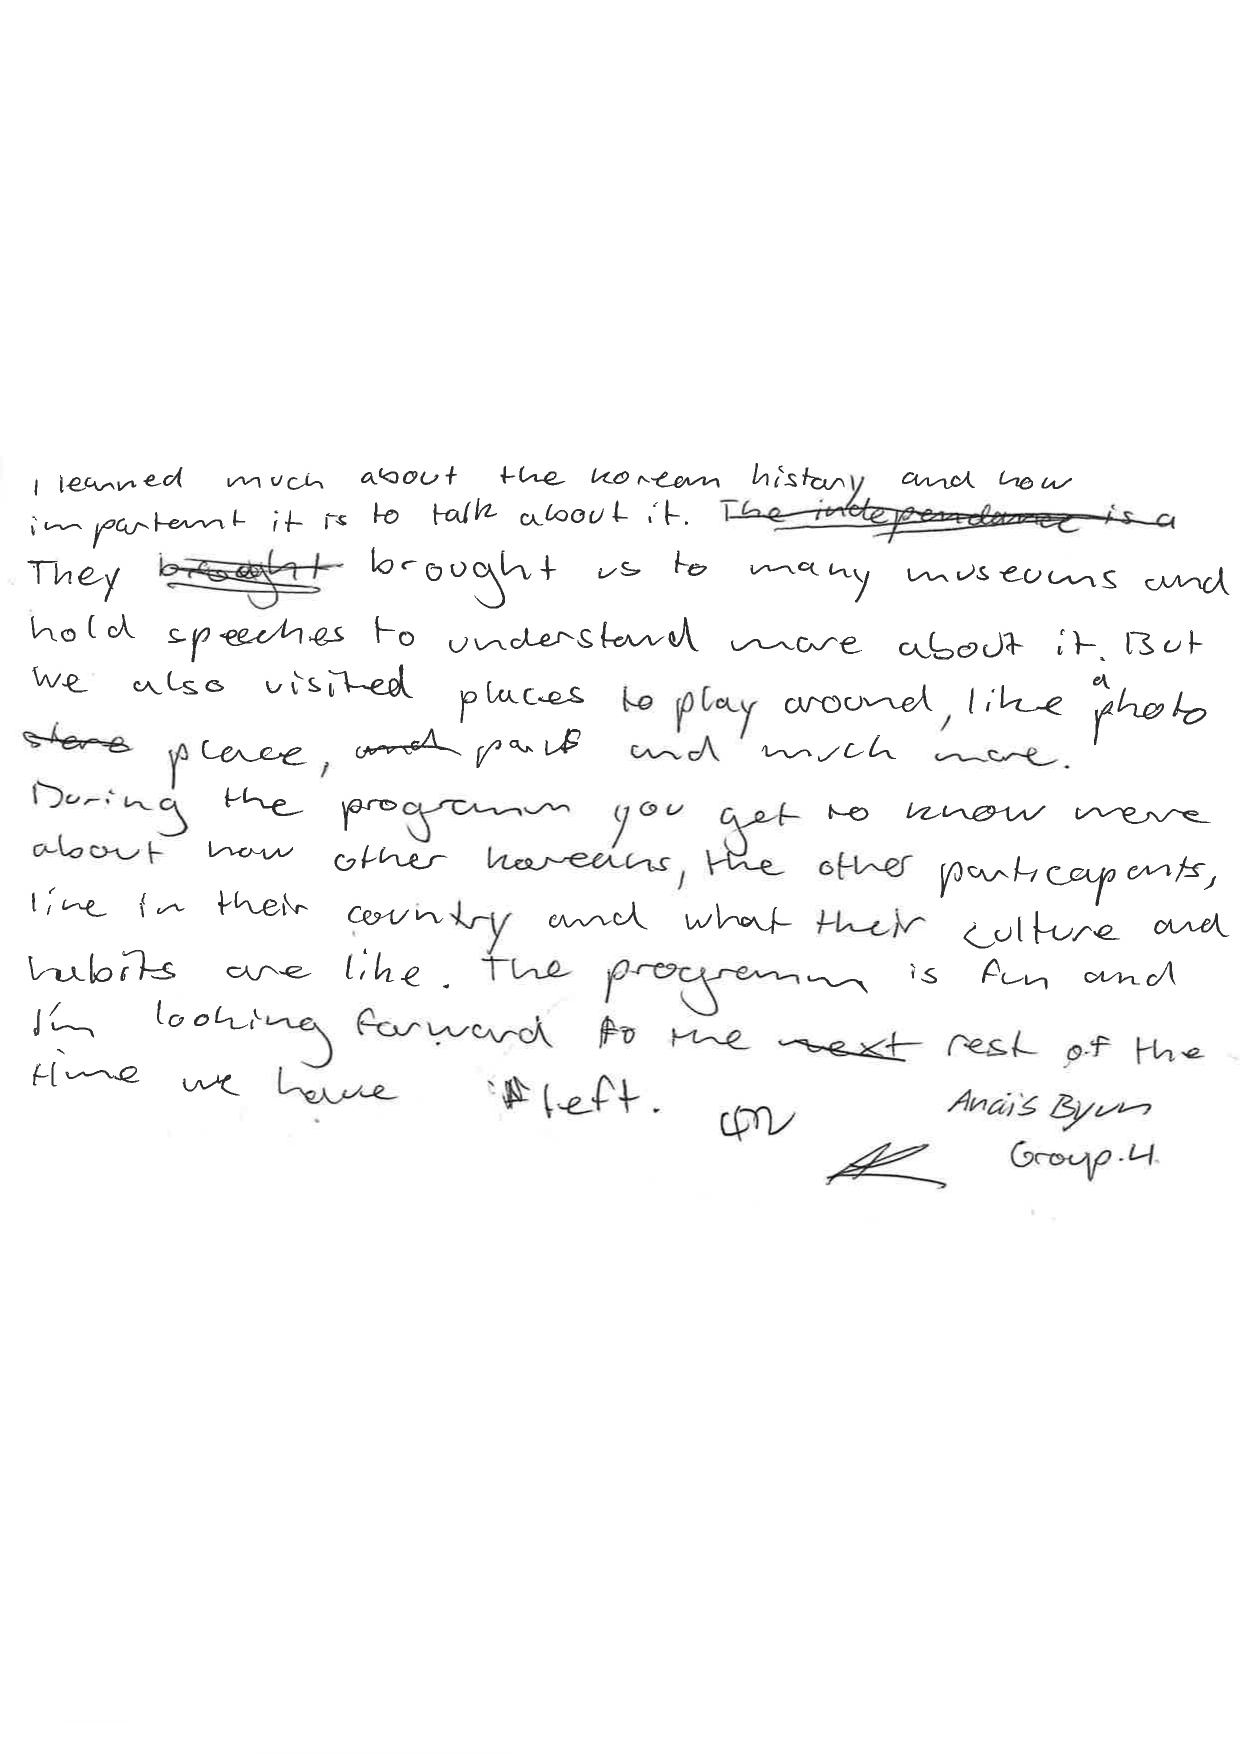 I learned much about the korean history and how
important it is to talk about it. The independance is a
They brought brought us to many museums and
hold speeches to understand more about it. But
we also visited places to play around, like a photo
store place, and park and much more.
During the programm you get to know more
about how other koreans, the other particapants,
live in their country and what their culture and
habits are like. The programm is fun and
I'm looking forward to the next rest of the
time we have left.
Anaïs Byun
Group.4